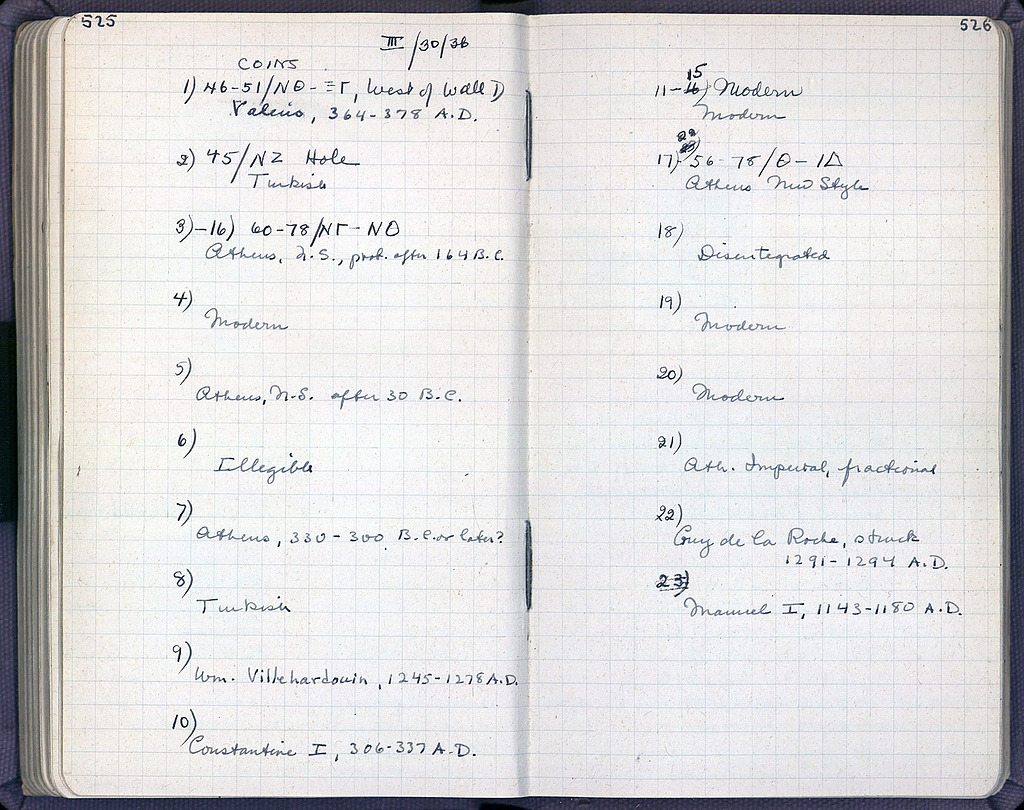 525
III/30/36
COINS
1) 46-51/ΝΘ-ΞΓ, West of Wall D
Valens, 364-378 A.D.
2) 45/ΝΖ Hole
Turkish
3)-16) 60-78/ΝΓ-ΝΘ
Athens, N.S., prob. after 164 B.C.
4)
Modern
5)
Athens, N.S. after 30 B.C.
6)
Illegible
7)
Athens, 330-300 B.C. or later?
8)
Turkish
9)
Wm. Villehardouin, 1245-1278 A.D.
10)
Constantine I, 306-337 A.D.
526
15
11-16) Modern
Modern
22
17)-23) 56-78/Θ-ΙΔ
Athens New Style
18)
Disintegrated
19)
Modern
20)
Modern
21)
Ath. Imperial, fractional
22)
Guy de la Roche, struck
1291-1294 A.D.
23)
Manuel I, 1143-1180 A.D.